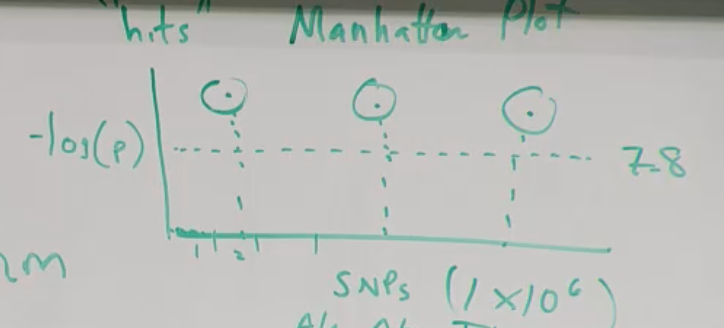 "hits" Manhattan Plot
-log(p)
7.8
1 2
SNPs (1 x 10⁶)